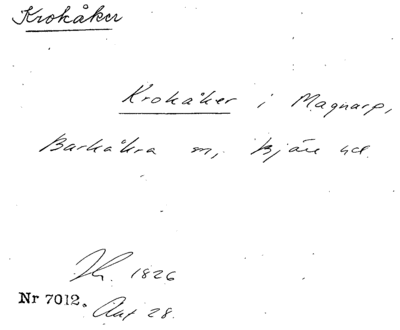 Krokåker
Krokåker i Magnarp,
Barkåkra sn, Bjäre hd.
1826
Nr 7012. Akt 28.